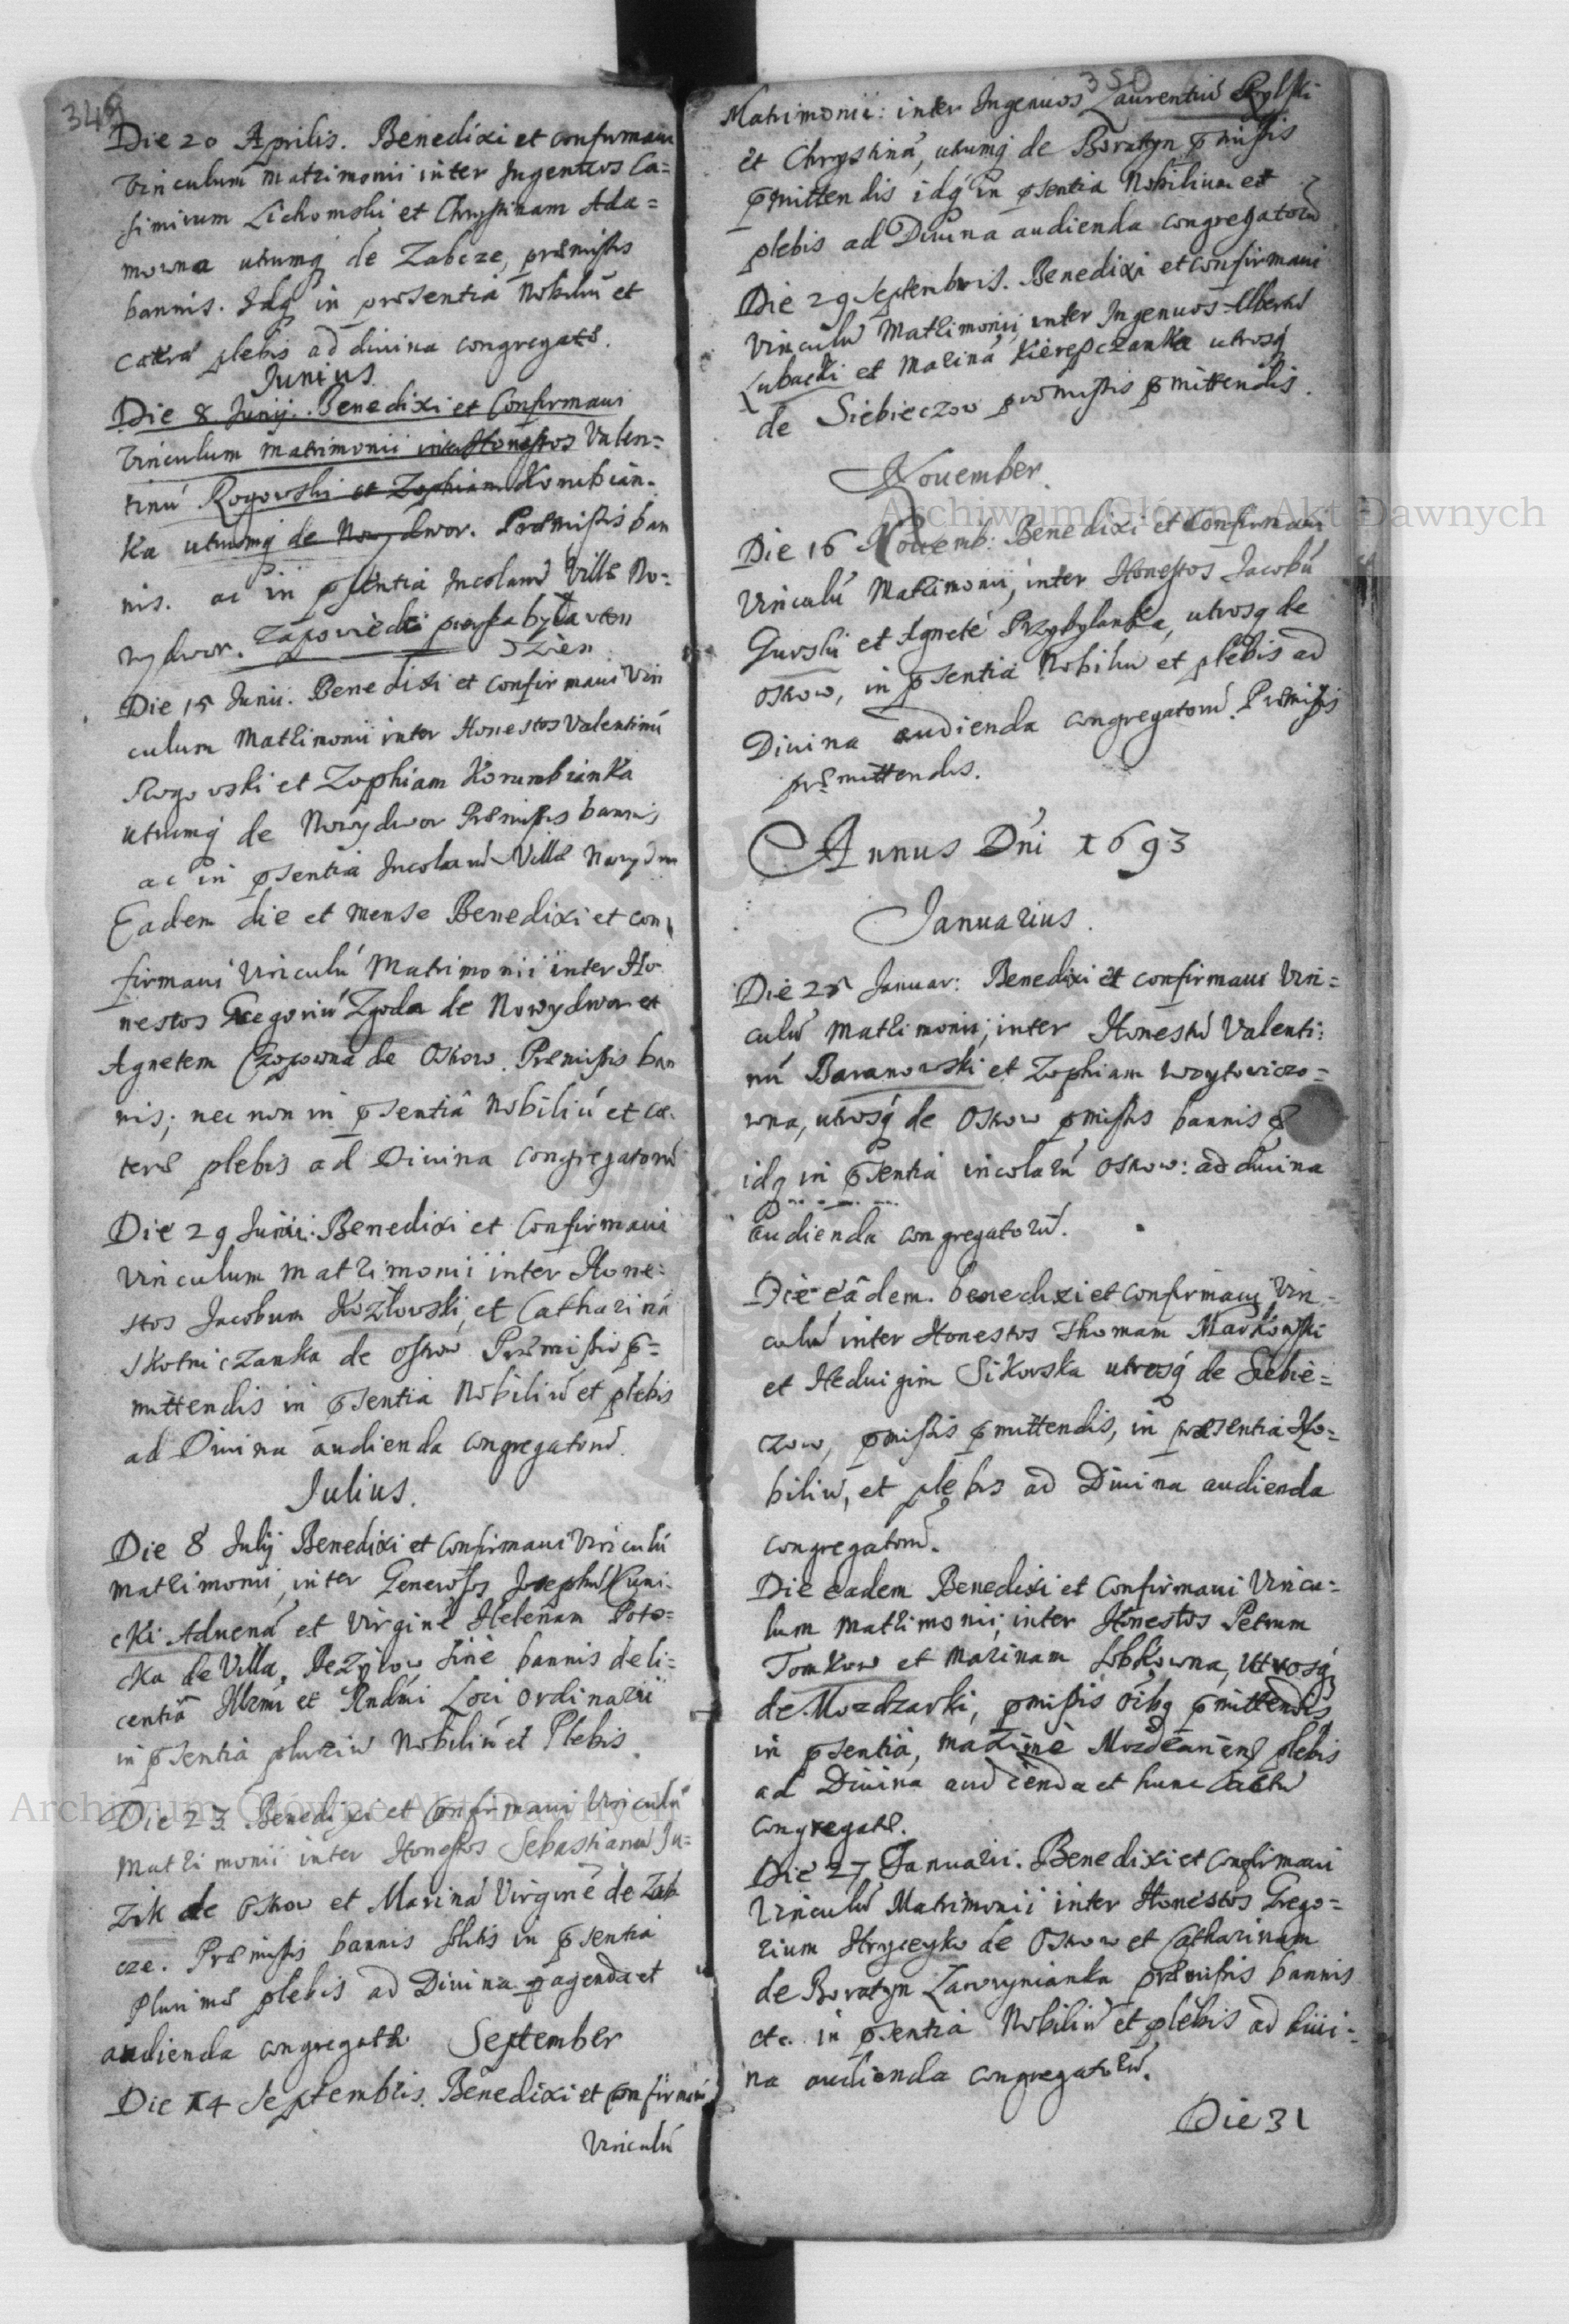 349
Die 20 Aprilis. Benedixi et confirmavi
vinculum matrimonii inter Ingenuos Ca=
simirum Lichomski et Chrystinam Ada=
mowna utrumq de Zabcze, præmissis
bannis. Idq in præsentia Nobiliũ et
plebis ad divina congregatæ.
Junius
Die 8 Junij. Benedixi et Confirmavi
vinculum matrimonii inter Honestos Valen=
tinũ Rogowski et Zophiam Korubian=
ka utrumq de Nowydwor. Præmissis ban
nis. ac in pſentia Incolarũ Villæ No=
wydwor. Zapowiedz była wten
Dzien
Die 15 Junii. Benedixi et confirmavi Vin
culum Matrimonii inter Honestos Valentinũ
Rogovski et Zophiam Korumbianka
utrumq de Nowydwor Præmissis bannis
ac in psentia Incolarũ Villæ Nowydwo
Eadem die et mense Benedixi et con=
firmavi Vinculũ Matrimonii inter Ho
nestos Gregoriũ Zgoda de Nowydwor et
Agnetem Czopowna de Oskow. Præmissis ban
nis; nec non in psentiâ Nobiliũ et cæ=
teræ plebis ad Divina congregatorũ
Die 29 Junii. Benedixi et Confirmavi
vinculum matrimonii inter Hone=
stos Jacobum Kozłovski, et Catharinã
Skotniczanka de Oskow Præmissis p=
mittendis in psentia Nobiliũ et plebis
ad Divina audienda congregatorũ.
Julius.
Die 8 Julij Benedixi et Confirmavi Vinculũ
matrimonii, inter Generosos Josephũ Kuni=
cki Advenã et Virginẽ Helenam Poto=
cka de Villa, sine bannis de li=
centiâ Illmi et Rndmi Loci Ordinarii
in psentia pluriũ Nobiliũ et Plebis
Die 23 Benedixi et Confirmavi Vinculũ
Matrimonii inter Honestos Sebastianũ Ju=
zik de Oskow et Marinã Virginẽ de Zab
cze. Præmissis bannis solitis in psentia
Plurimæ plebis ad Divina pagenda et
audienda congregatæ September
Die 14 Septembris. Benedixi et confirmavi
Vinculũ
350
Matrimonii: inter Ingenuos Laurentiũ Rylski
et Chrystinã, utrumq de Boratyn pmissis
pmittendis idq in psentia Nobilium et
plebis ad Divina audienda congregatorũ
Die 29 Septembris. Benedixi et confirmavi
vinculũ Matrimonii, inter Ingenuos Albertũ
Lubacki et Marinã utrosq
de Siebieczow præmissis pmittendis.
November.
Die 16 Novemb: Benedixi et Confirmavi
Vinculũ Matrimonii, inter Honestos Jacobũ
Gurski et Agnetẽ Przybylanka, utrosq de
Oskow, in psentia Nobiliũ et plebis ad
Divina audienda congregatorũ. Præmissis
præmittendis.
Annus Dni 1693
Januarius.
Die 25 Januar: Benedixi et confirmavi Vin=
culũ matrimonii, inter Honestũ Valenti=
nũ Baranowski et Zophiam Woytowiczo=
wna, utrosq de Oskow pmissis bannis &
idq in psentia incolarũ Oskow: ad divina
audienda congregatorũ.
Die eâdem. benedixi et confirmavi Vin=
culũ inter Honestos Thomam Markowski
et Heduigim Sikorska utrosq de Siebie=
czow, pmissis pmittendis, in præsentia No=
biliũ, et plebis ad Divina audienda
congregatorũ.
Die eadem Benedixi et Confirmavi Vincu=
lum matrimonii, inter Honestos Petrum
Tomkow et Marinam Sobkowna, Utrosq
de Mozdzarki, pmissis oibq pmittendis
in psentia, maxime plebis
ad Divina audienda et hunc actũ
congregatæ.
Die 27 Januarii. Benedixi et confirmavi
Vinculũ Matrimonii inter Honestos Grego=
rium Hryceyko de Oskow et Catharinam
de Boratyn Lawrynianka præmissis bannis
etc. in psentia Nobiliũ et plebis ad divi=
na audienda congregatorũ.
Die 31
Archiwum Główne Akt Dawnych
Archiwum Główne Akt Dawnych